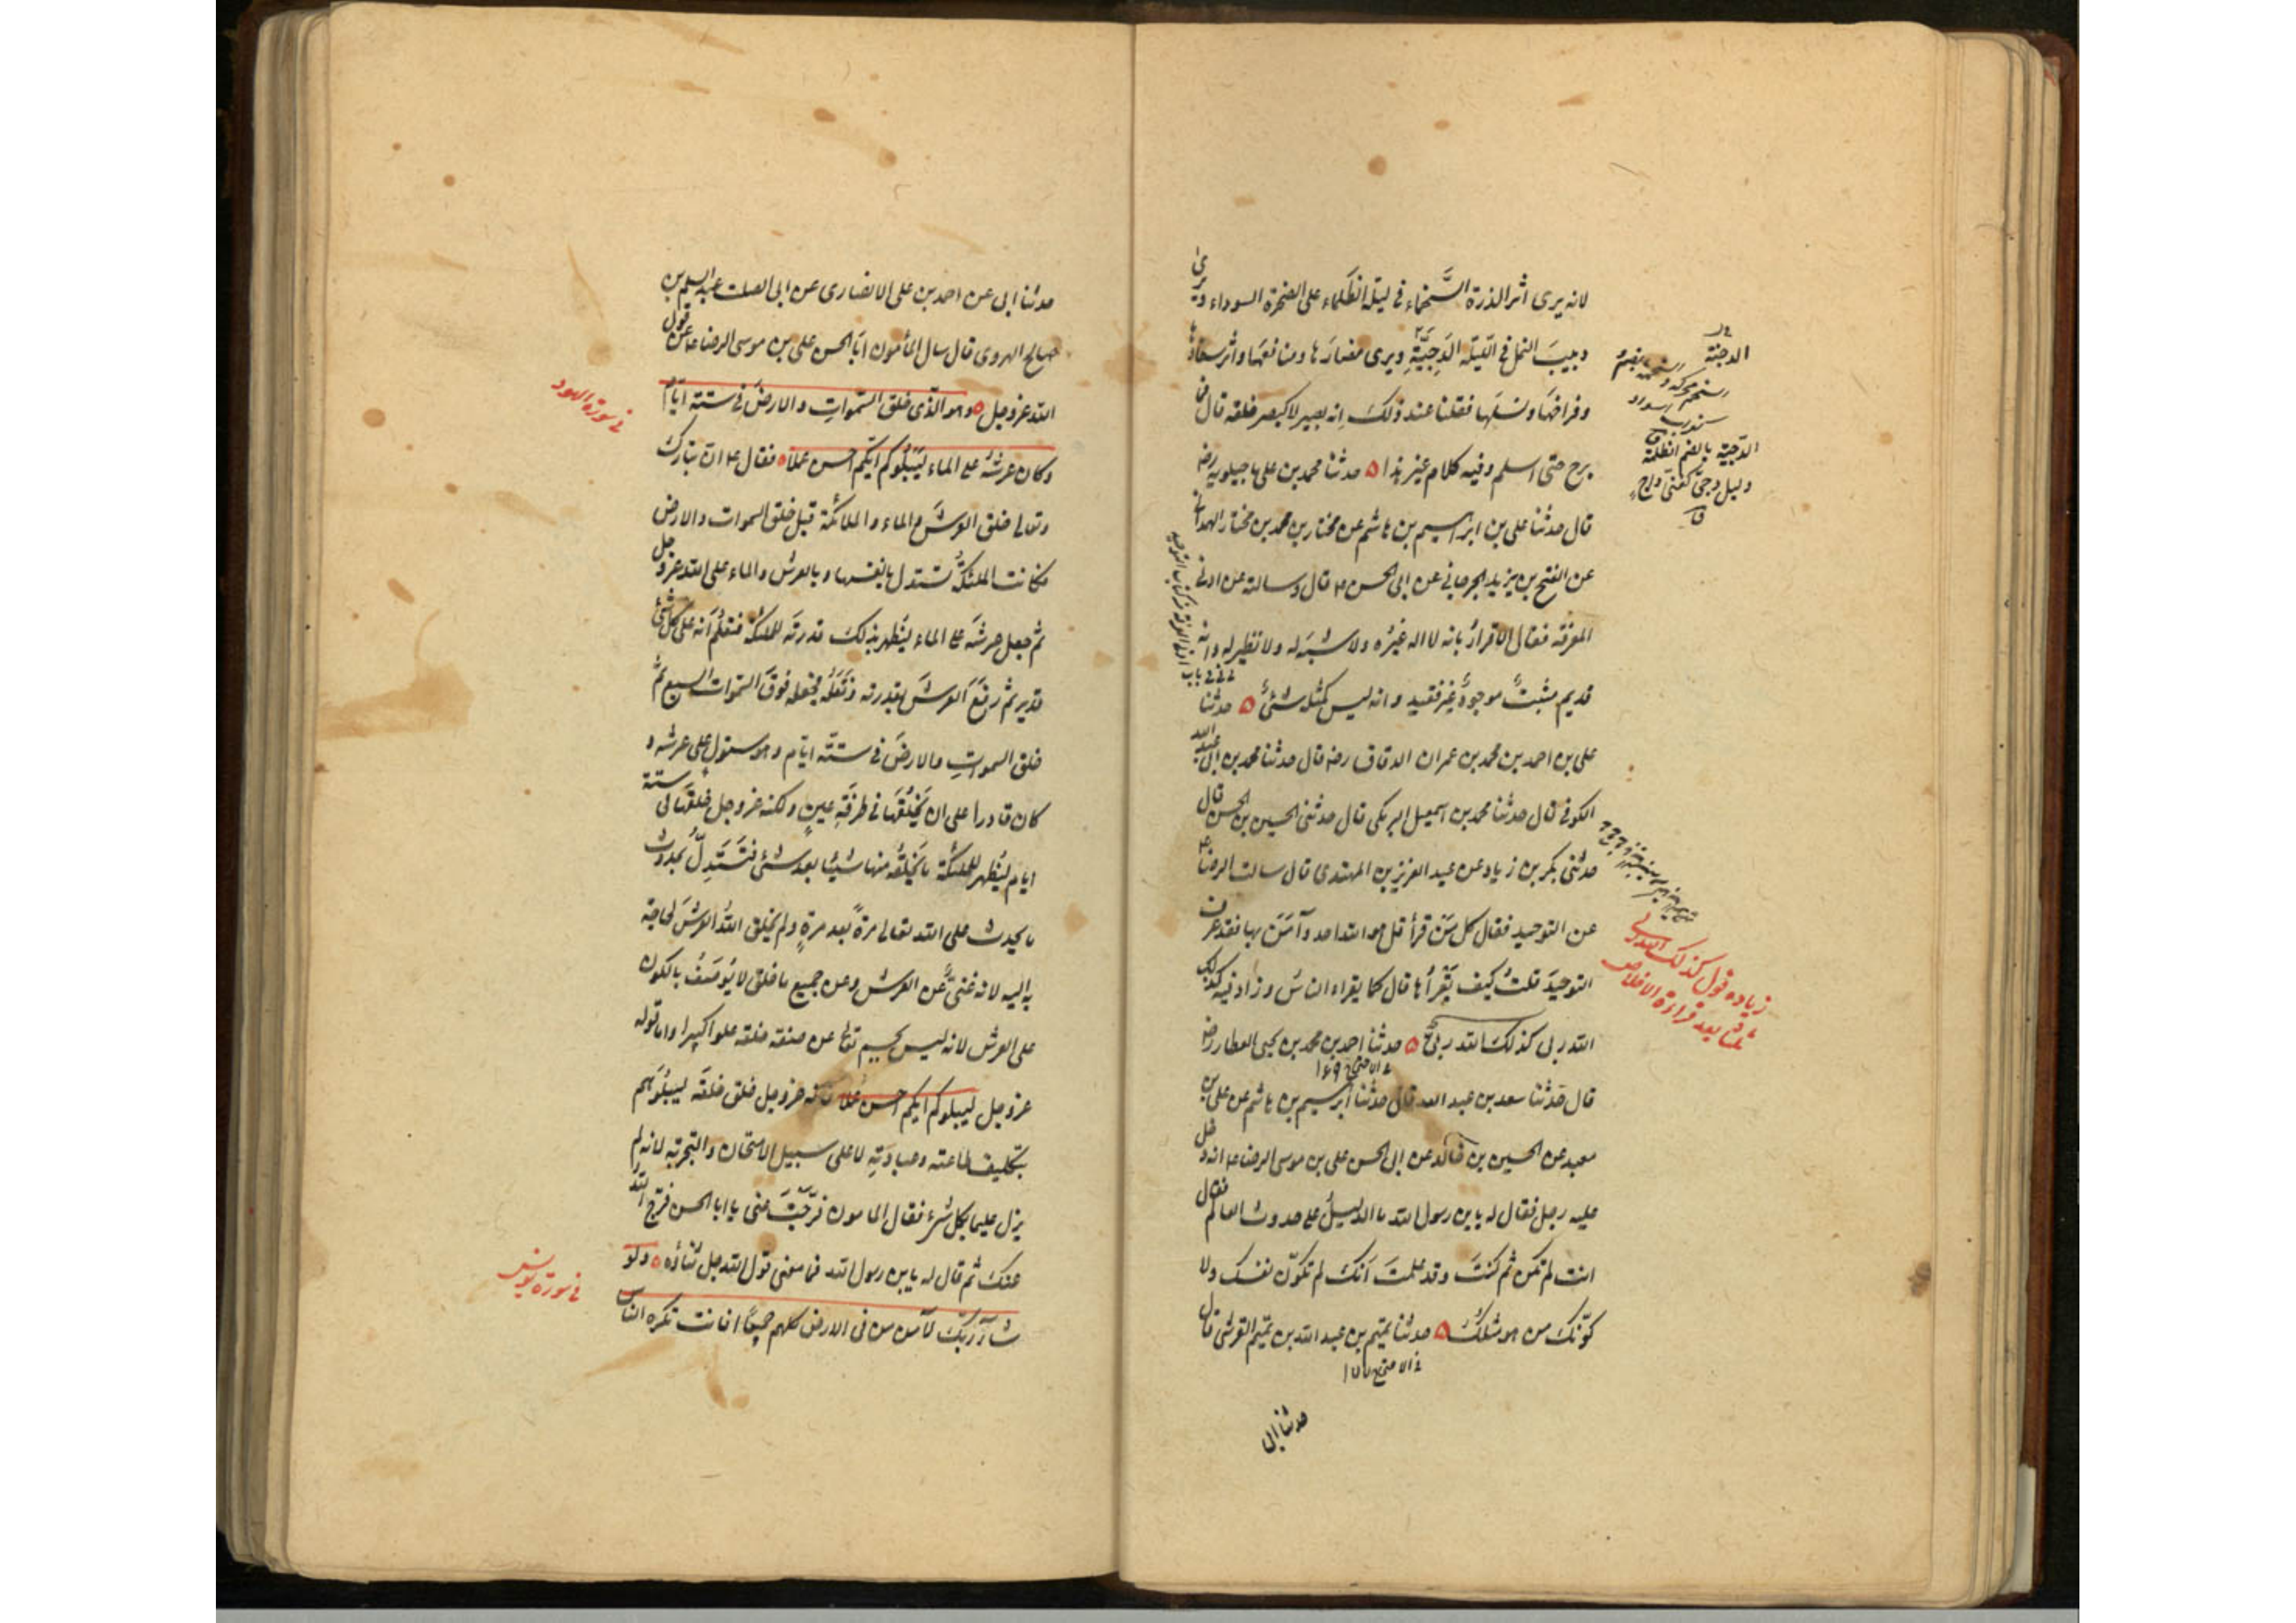 لانه يرى اثر الذرة السَّحْماء فى ليلة الظَلماء على الصخرة السوداء ويرى
دبيبَ النمل فى الليلة الدَجِيَّةِ ويرى مضارَها ومنافعَها واثر سفادها
وفراخهَا ونسلَها فقلنا عند ذلكَ اِنه بصير لا كبصر خلقه قال فما
برح حتى اسلم وفيه كلام غير هذا ۵ حدثنا محمد بن على ماجيلويه رضه
قال حدثنا على بن ابراهيم بن هاشم عن مختار بن محمد بن مختار الهمدانى
عن الفتح بن يزيد الجرجانى عن ابى الحسن ۴ قال وسالته عن ادنى
المعرفة فقال الاقرارُ بانه لا اله غيرُه ولا شبهَ له ولا نظير له وانه
قديم مثبتٌ موجودٌ غير فقيد وانه ليس كمثله شئٌ ۵ حدثنا
على بن احمد بن محمد بن عمران الدقاق رضه قال حدثنا محمد بن ابى عبد الله
الكوفى قال حدثنا محمد بن اسمعيل البرمكى قال حدثنى الحسين بن الحسن قال
حدثنى بكر بن زياد عن عبد العزيز بن المهتدى قال سالت الرضا ۴
عن التوحيد فقال كل مَنْ قرأ قل هو الله احد وآمَنَ بها فقد عرف
التوحيدَ قلتُ كيف يَقْرَأُها قال كما يقراء الناسُ وزاد فيه كذلك
الله ربى كذلك الله ربى ۵ حدثنا احمد بن محمد بن يحيى العطار رضه
فى الامتحان ١٦٩
قال حَدثنا سعد بن عبد الله قال حدثنا ابراهيم بن هاشم عن على بن
معبد عن الحسين بن خالد عن ابى الحسن على بن موسى الرضا ۴ انه دخل
عليه رجل فقال له يا بن رسول الله ما الدليلُ على حدوث العالم فقال
انت لم تكن ثم كنتَ وقد علمتَ اَنكَ لم تكوّن نفسك ولا
كوّنكَ من هو مثلُكَ ۵ حدثنا تميم بن عبد الله بن تميم القرشى قال
حدثنا ابى
الدجنة
الدّجيّة بالضم الظلمة
وليل دجىّ كغنى داجٍ
ق
زياده قول كذلك الله ربى
بعد قراءة الاخلاص
حدثنا ابى عن احمد بن على الانصارى عن ابى الصلت عبد السلم بن
صالح الهروى قال سال المأمون ابَا الحسن على بن موسى الرضا ۴ عن قول
الله عز وجل ۵ وهو الّذى خلق السّموات والارضَ فى ستة ايّام
وكان عرشهُ على الماء لِيَبْلُوكم ايّكم احسن عملا ۵ فقال ۴ ان تبارك
وتعالى خلق العرشَ والماء والملائكة قبل خلق السموات والارض
فكانت الملئكةُ تستدل بانفسها وبالعرش والماء على الله عز وجل
ثم جعل عرشَه على الماء ليُظهر بذلك قدرتَه للملئكة فتعلمَ انه على كل شئ
قدير ثم رفَعَ العرشَ بقدرته ونَقَلَه فجعله فوقَ السّموات السبع ثم
خلق السمواتِ والارضَ فى ستّة ايّام وهو مستولٍ على عرشه و
كان قادرا على ان يَخْلُقَها فى طرفَةِ عينٍ ولكنه عز وجل خلقَها فى ستة
ايام ليُظهر للملئكة ما يَخْلُقُه منها شيئا بعد شئ فتَستَدِلَّ بحدوث
ما يحدث على الله تعالى مرةً بعد مرةٍ ولم يخلق اللهُ العرشَ لحاجة
به اليه لانه غنىٌّ عن العرش وعن جميع ما خلق لا يُوصَفُ بالكون
على العرش لانه ليس بجسم تعالى عن صفة خلقه علوا كبيرا واما قوله
عز وجل ليبلوكم ايكم احسن عملا فانه عز وجل خلق خلقَه ليبلُوَهم
بتكليف طاعته وعبادتِهِ لا على سبيل الامتحان والتجربة لانه لم
يزل عليما بكل شئ فقال المامون فَرَّجْتَ عنى يا ابا الحسن فرّج الله
عنك ثم قال له يا بن رسول الله فما معنى قول الله جل ثناؤه ۵ ولو
شاء رَبّكَ لآمن من فى الارض كلهم جميعًا افانت تكره الناس
فى سورة الهود
فى سورة يونس